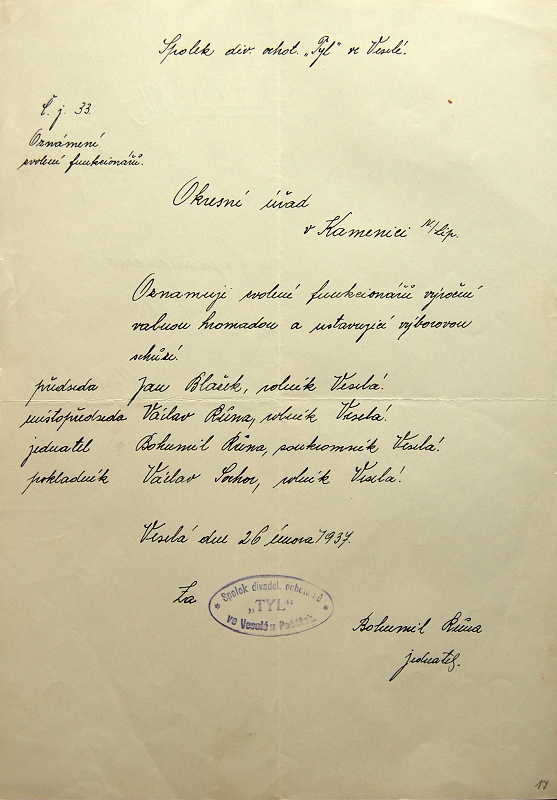 Spolek div. ochot. „Tyl" ve Veselé.
Č. j. 33.
Oznámení
zvolení funkcionářů.
Okresní úřad
v Kamenici n/Lip.
Oznamuji zvolení funkcionářů výroční
valnou hromadou a ustavující výborovou
schůzí.
předseda Jan Blažek, rolník Veselá.
místopředseda Václav Růna, rolník Veselá.
jednatel Bohumil Růna, soukromník Veselá.
pokladník Václav Sochor, rolník Veselá.
Veselá dne 26 února 1937.
Za
Spolek divadel. ochotníků
„TYL"
ve Veselé u
Bohumil Růna
jednatel.
17